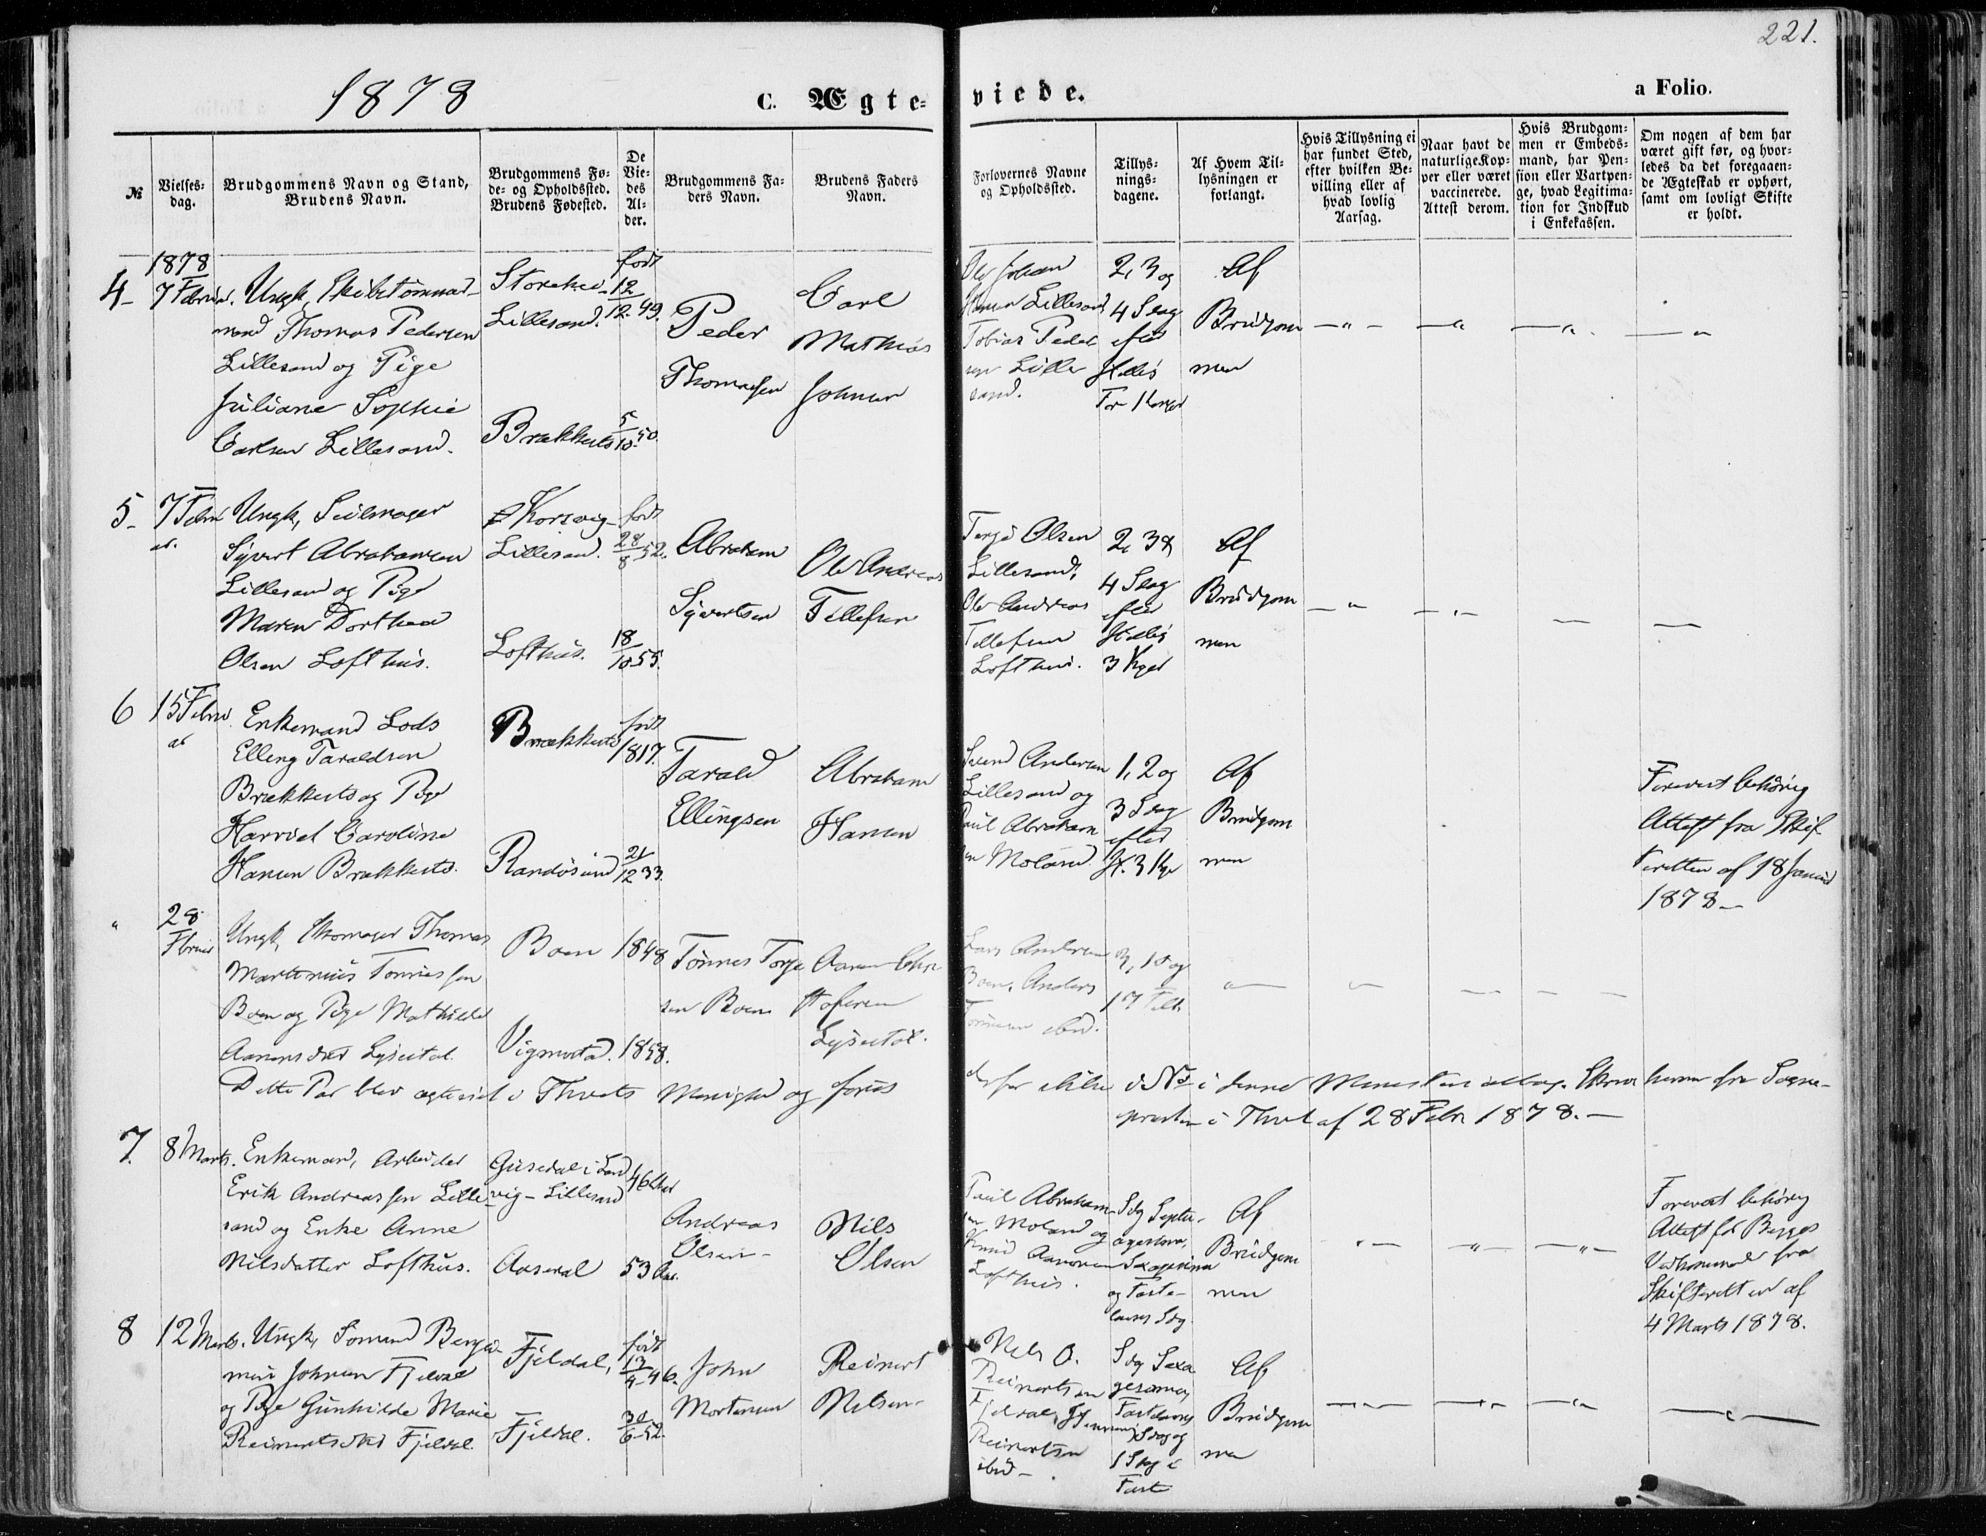 221.
1878
C. Ægte-
viede.
a Folio.
№
Vielses-
dag.
Brudgommens Navn og Stand,
Brudens Navn.
Brudgommens Fø-
de- og Opholdssted.
Brudens Fødested.
De
Vie-
des
Al-
der.
Brudgommens Fa-
ders Navn.
Brudens Faders
Navn.
Forlovernes Navne
og Opholdssted.
Tillys-
nings-
dagene.
Af Hvem Til-
lysningen er
forlangt.
Hvis Tillysning ei
har fundet Sted,
efter hvilken Be-
villing eller af
hvad lovlig
Aarsag.
Naar havt de
naturlige Kop-
per eller været
vaccinerede.
Attest derom.
Hvis Brudgom-
men er Embeds-
mand, har Pen-
sion eller Vartpen-
ge, hvad Legitima-
tion for Indskud
i Enkekassen.
Om nogen af dem har
været gift før, og hvor-
ledes da det foregaaen-
de Ægteskab er ophørt,
samt om lovligt Skifte
er holdt.
1878
4
7 Februar.
Ungk, Skibstømmer-
mand Thomas Pedersen
Lillesand og Pige
Juliane Sophie
Carlsen Lillesand.
Lillesand.
Brækkestø
født
12/12 49.
5/10 50.
Peder
Thomassen
Carl
Mathias
Johnsen
Ole Johan
Hansen Lillesand
Tobias Peder
sen Lille
sand.
2, 3 og
4 Sdag
efter
Hellig
Tre Konger
Af
Brudgom
men
5
7 Febru
ar.
Ungk, Seilmager
Syvert Abrahamsen
Lillesand og Pige
Maren Dorthea
Olsen Lofthus.
Korsvig
Lillesand.
Lofthus.
født
28/8 52.
18/10 55.
Abraham
Syvertsen
Ole Andreas
Tellefsen
Terje Olsen
Lillesand,
Ole Andreas
Tellefsen
Lofthus.
2, 3 &
4 Sdag
efter
Hellig
3 Kger
Af
Brudgom
men
6
15 Febru
ar
Enkemand Lods
Elling Taraldsen
Brækkestø og Pige
Harriet Caroline
Hansen Brækkestø.
Brækkestø
Randøsund
født
1817.
21/12 33.
Tarald
Ellingsen
Abraham
Hansen
Svend Andersen
Lillesand og
Paul Abraham
sen Moland.
1, 2 og
3 Sdag
efter
H. 3 Kge
Af
Brudgom
men
Forevist behørig
Attest fra Skif
teretten af 18 Januar
1878
28
Februar
Ungk, Skomager Thomas
Martinius Tønnessen
Boen og Pige Mathilde
Aanensdat Lysestøl.
Boen
Vigmostad.
1848
1858.
Tønnes Torje
sen Boen
Aanen Chri
stofersen
Lysestøl.
Lars Andersen
Boen, Anders
Tønnesen ibid.
3, 10 og
17 Feb.
Dette Par blev ægteviet i Thvets Menighed og føres
derfor ikke i No i denne Ministerialbog. Skrivelse herom fra Sogne-
præsten i Thvet af 28 Febr 1878.
7.
8 Marts.
Enkemand, Arbeider
Erik Andreassen Lille
sand og Enke Anne
Nilsdatter Lofthus.
Gusedal i Land
vig - Lillesand
Aaseral
46 Aar
53 Aar.
Andreas
Olsen
Nils
Olsen
Paul Abraham
sen Moland og
Knud Aanonsen
Lofthus.
Sdg Septu-
agesima,
Sexagesima
og Faste-
lavns Sdg
Af
Brudgom
men
Forevist behørig
Attest for Begges
Vedkommende fra
Skifteretten af
4 Marts 1878.
8
12 Marts.
Ungk, Sømand Bergu-
mini Johnsen Fjeldal
og Pige Gunhilde Marie
Reinertsdat Fjeldal.
Fjeldal,
Fjeldal.
født
13/4 46.
30/6 52.
John
Mortensen
Reinert
Nilsen
Nels O.
Reinertsen
Fjeldal,
Reinertsen
ibid
Sdg Sexa
gesima,
Fastelavns
Sdag og
1 Sdag i
Faste
Af
Brudgom
men